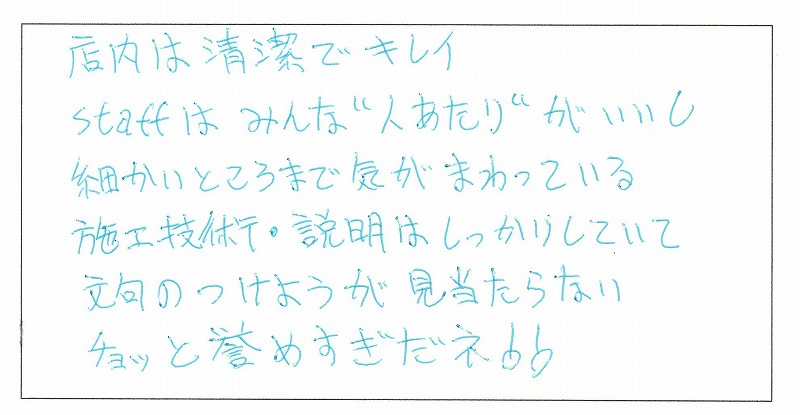 店内は清潔でキレイ
staffはみんな“人あたり“がいいし
細かいところまで気がまわっている
施工技術・説明はしっかりしていて
文句のつけようが見当たらない
チョッと誉めすぎだネ